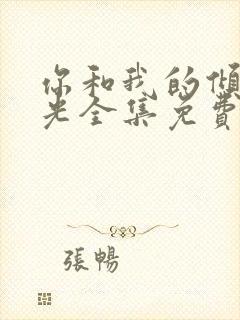 你和我的傾
光全集免費
張暢